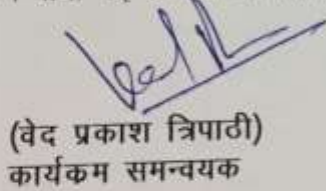 (वेद प्रकाश त्रिपाठी)
कार्यकम समन्वयक